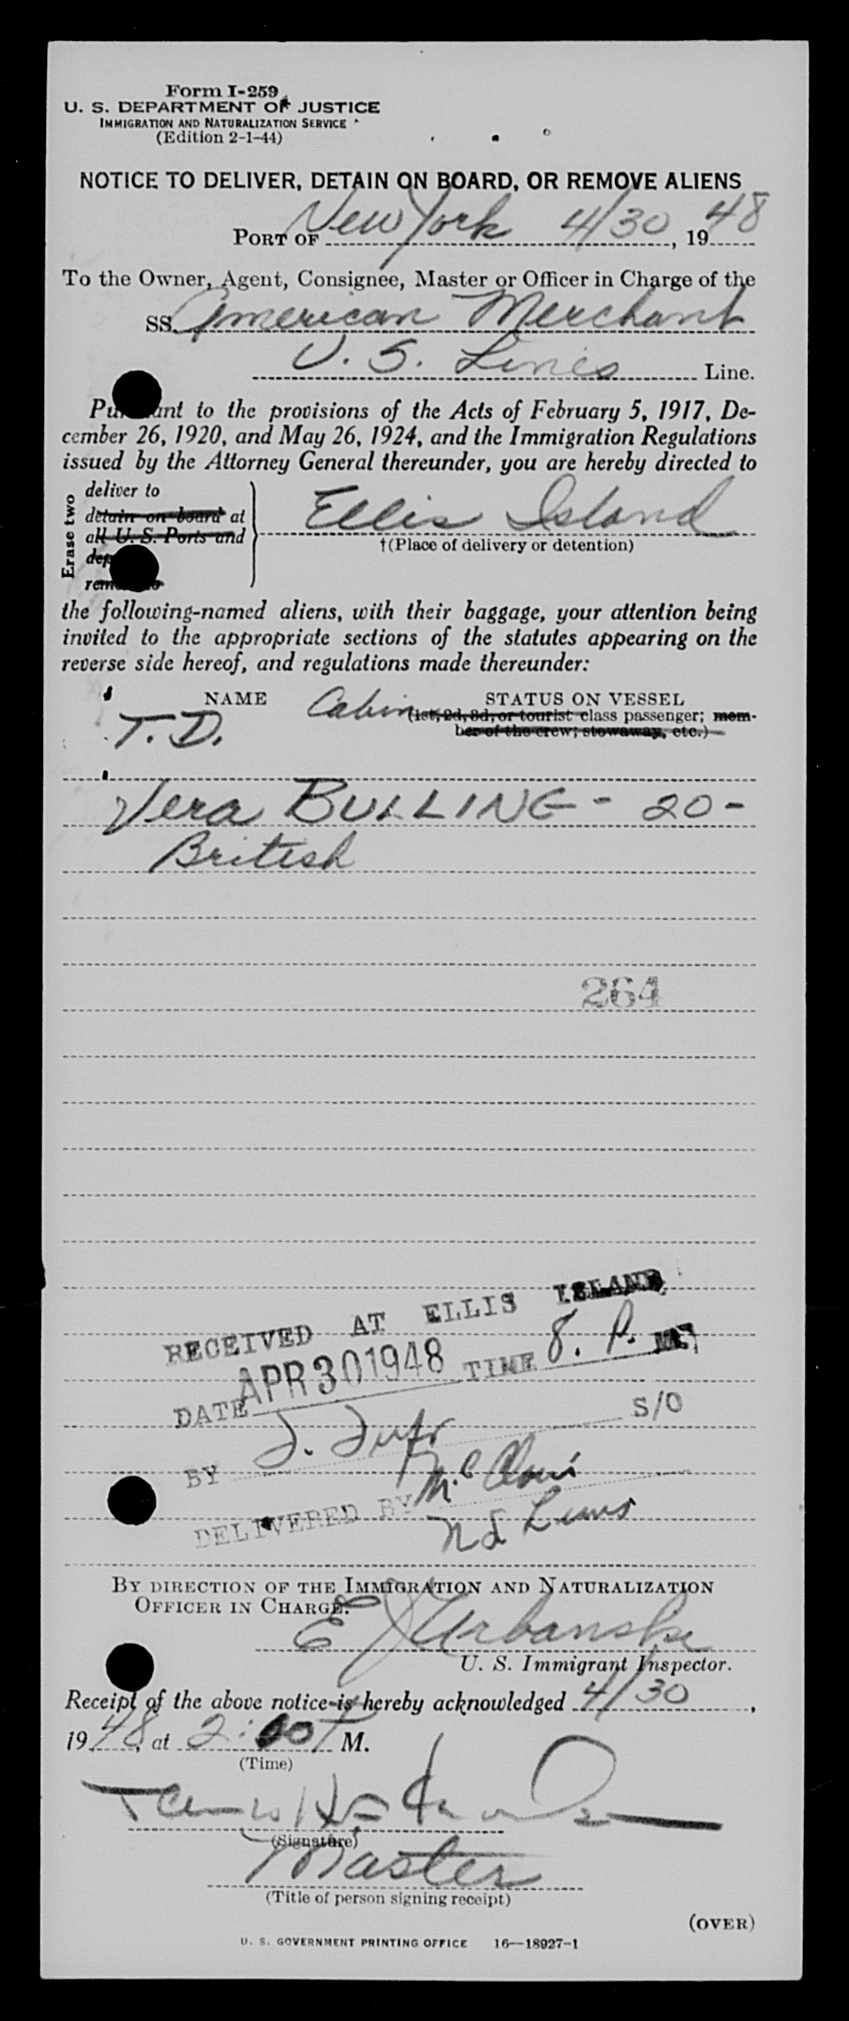 Form I-259
U. S. DEPARTMENT OF JUSTICE
IMMIGRATION AND NATURALIZATION SERVICE
(Edition 2-1-44)
NOTICE TO DELIVER, DETAIN ON BOARD, OR REMOVE ALIENS
PORT OF New York 4/30, 1948
To the Owner, Agent, Consignee, Master or Officer in Charge of the
SS. American Merchant
U. S. Lines Line.
Pursuant to the provisions of the Acts of February 5, 1917, De-
cember 26, 1920, and May 26, 1924, and the Immigration Regulations
issued by the Attorney General thereunder, you are hereby directed to
Erase two
deliver to
detain on board at
all U. S. Ports and
Ellis Island
†(Place of delivery or detention)
the following-named aliens, with their baggage, your attention being
invited to the appropriate sections of the statutes appearing on the
reverse side hereof, and regulations made thereunder:
NAME Cabin STATUS ON VESSEL
(1st, 2d, 3d, or tourist class passenger; mem-
ber of the crew; stowaway, etc.)
T. D.
Vera BULLING - 20 -
British
264
RECEIVED AT ELLIS ISLAND
DATE APR 30 1948 TIME 8. P. M
BY S/O
DELIVERED BY
BY DIRECTION OF THE IMMIGRATION AND NATURALIZATION
OFFICER IN CHARGE.
E J Urbanski
U. S. Immigrant Inspector.
Receipt of the above notice is hereby acknowledged 4/30,
1948, at 2:00 P M.
(Time)
(Signature)
Master
(Title of person signing receipt)
(OVER)
U. S. GOVERNMENT PRINTING OFFICE 16—18927-1